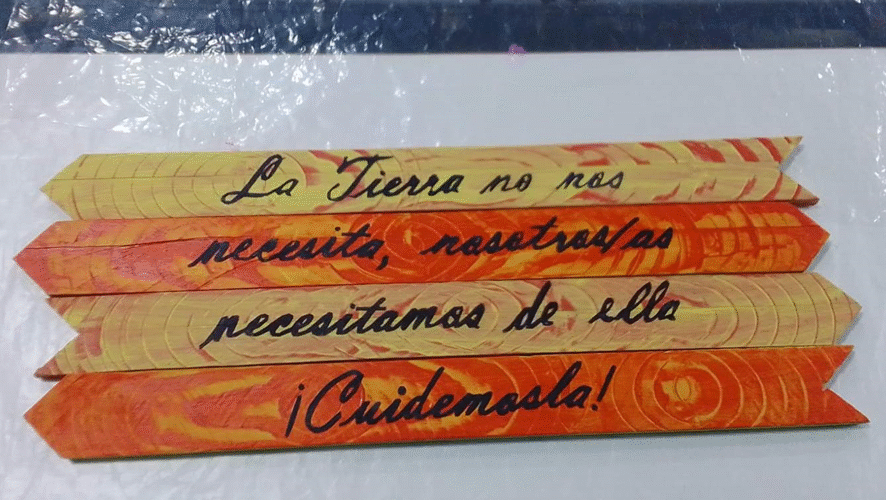 La Tierra no nos
necesita, nosotros/as
necesitamos de ella
¡Cuidemosla!